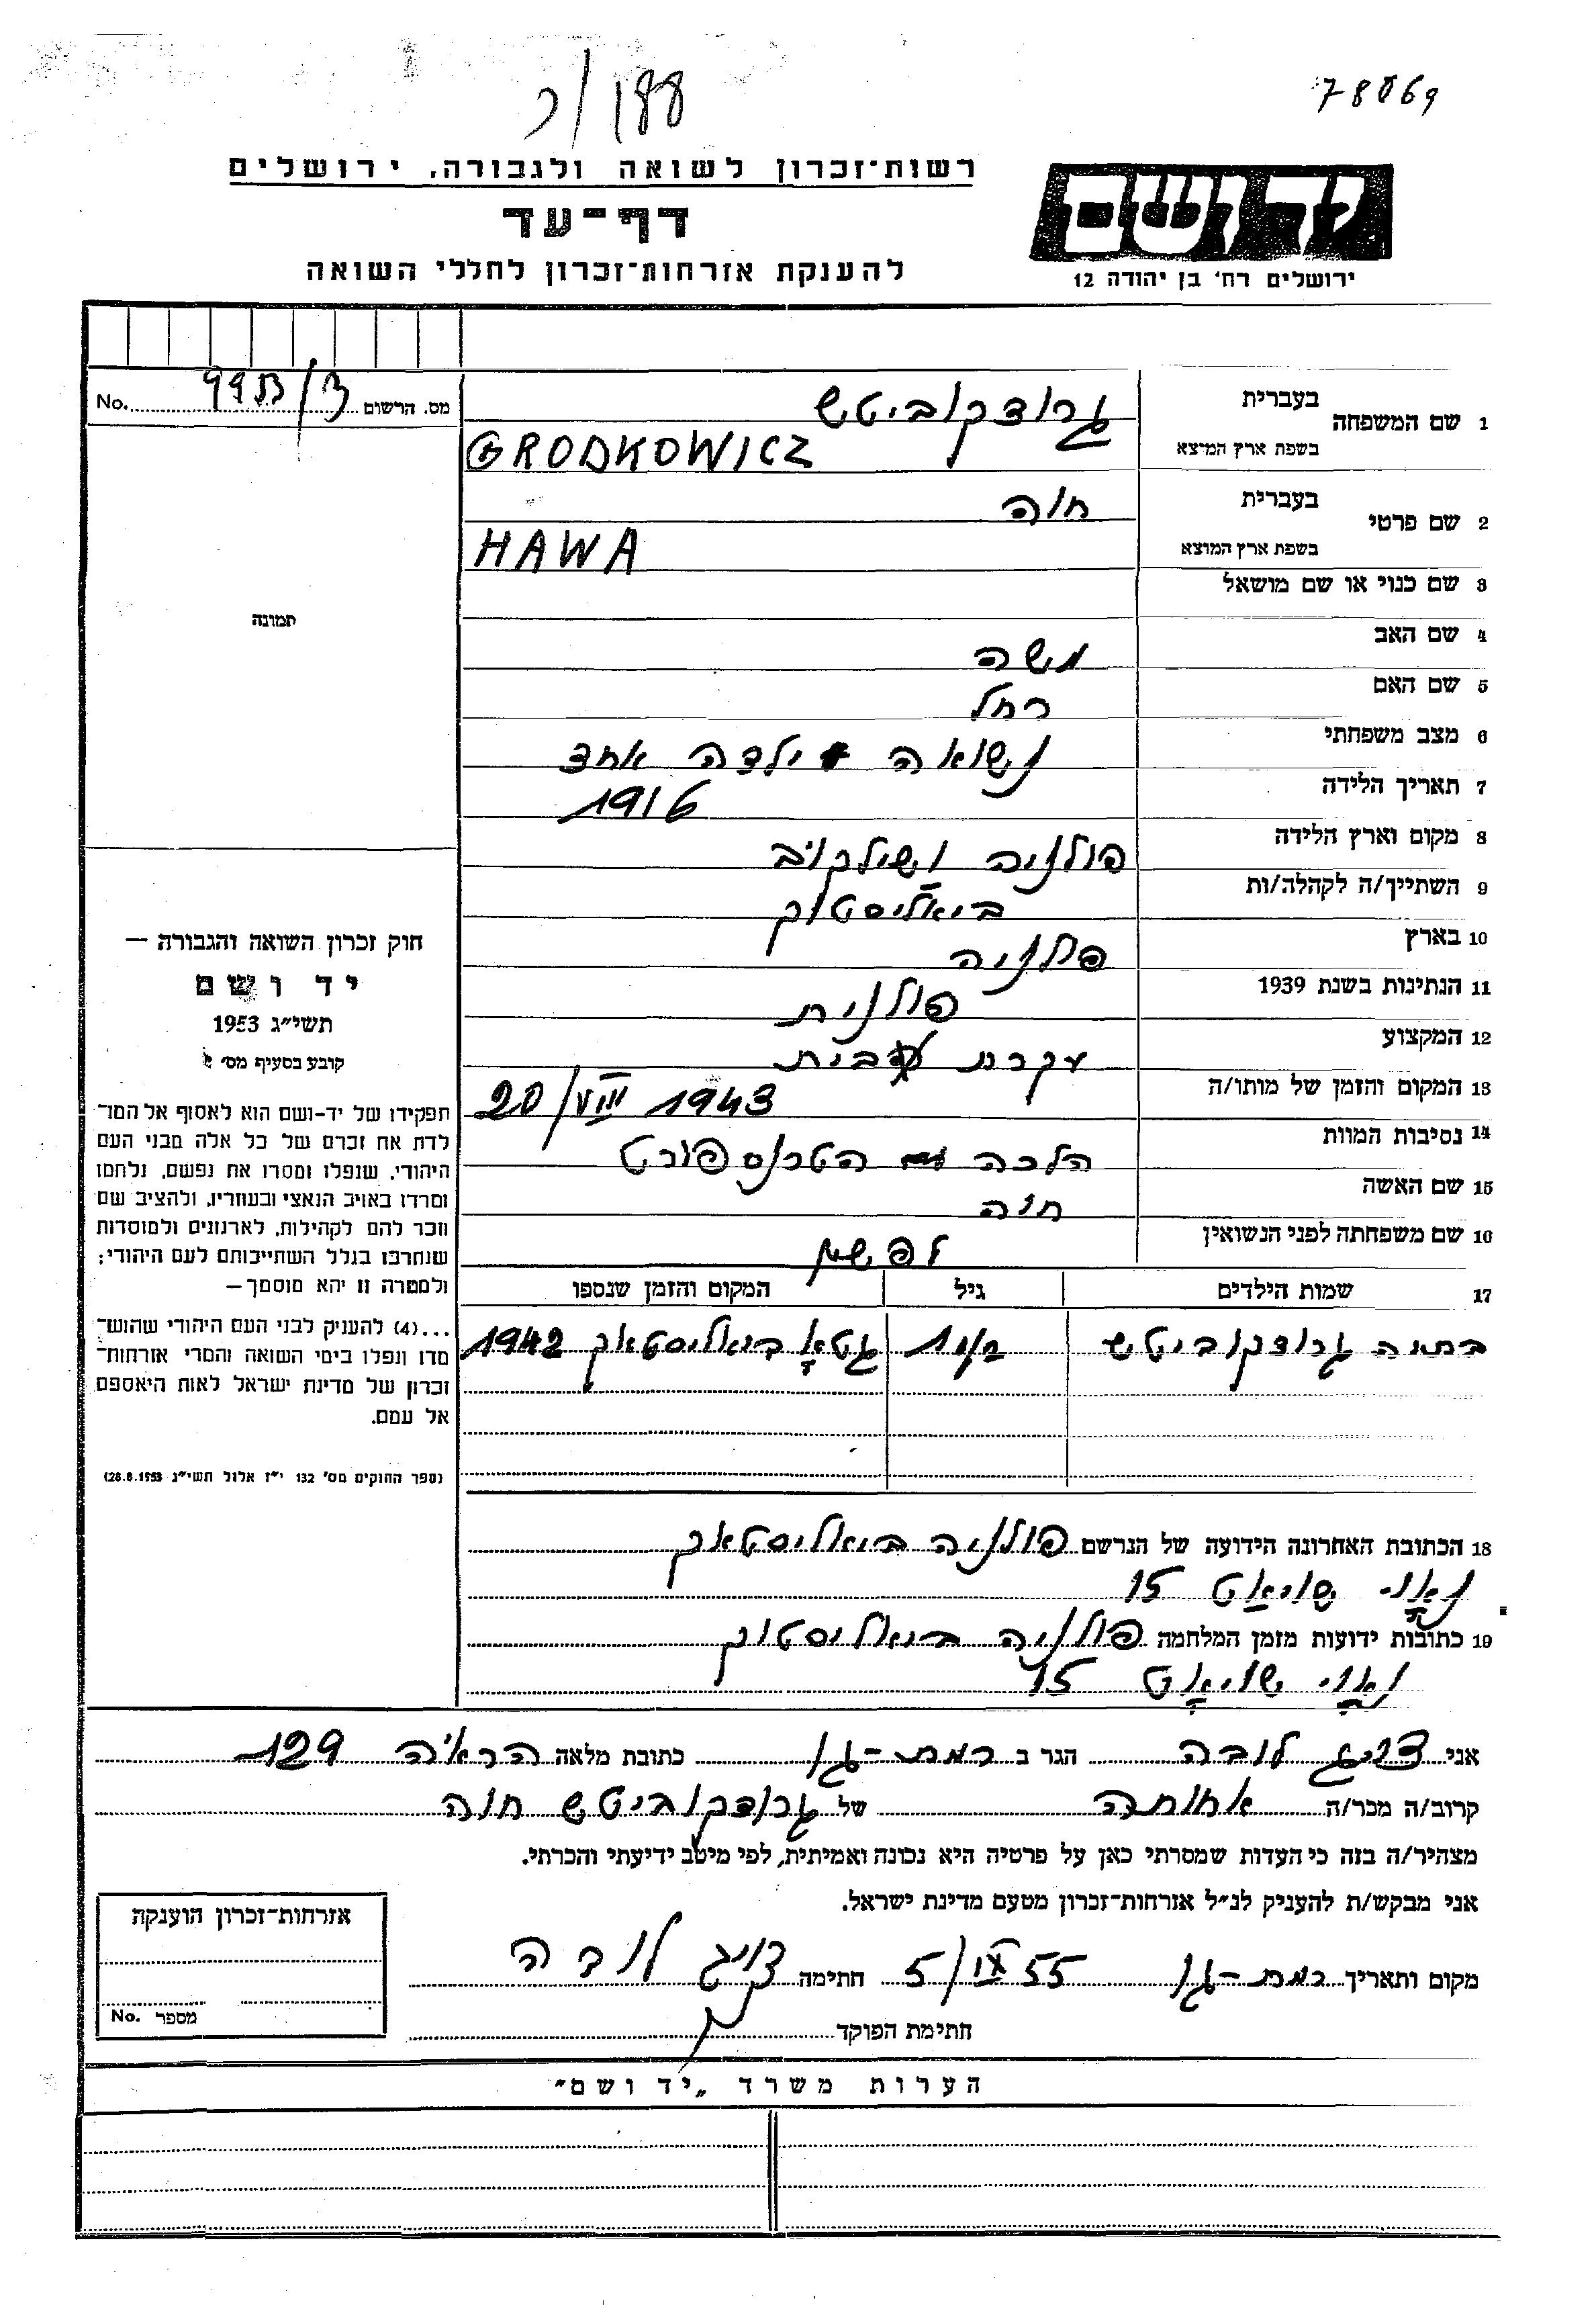 78069
188/ר
רשות־זכרון לשואה ולגבורה, ירושלים
יד ושם
דף־עד
להענקת אזרחות־זכרון לחללי השואה
ירושלים רח' בן יהודה 12
מס. הרשום 3/9953 No.
1 שם המשפחה בעברית גרודקוביטש
בשפת ארץ המוצא GRODKOWICZ
2 שם פרטי בעברית חוה
בשפת ארץ המוצא HAWA
3 שם כנוי או שם מושאל
תמונה
4 שם האב משה
5 שם האם רחל
6 מצב משפחתי נשואה ילדה אחד
7 תאריך הלידה 1916
8 מקום וארץ הלידה פולניה ושילקוב
9 השתייך/ה לקהלה/ות ביאליסטוק
10 בארץ פלניה
11 הנתינות בשנת 1939 פולנית
12 המקצוע עקרת בית
13 המקום והזמן של מותו/ה 20/VIII 1943
14 נסיבות המוות הלכה עם הטרנספורט
15 שם האשה חוה
16 שם משפחתה לפני הנשואין ליפשיץ
חוק זכרון השואה והגבורה —
יד ושם
תשי״ג 1953
קובע בסעיף מס'
תפקידו של יד-ושם הוא לאסוף אל המו־
לדת את זכרם של כל אלה מבני העם
היהודי, שנפלו ומסרו את נפשם, נלחמו
ומרדו באויב הנאצי ובעוזריו, ולהציב שם
וזכר להם לקהילות, לארגונים ולמוסדות
שנחרבו בגלל השתייכותם לעם היהודי;
ולמטרה זו יהא מוסמך—
...(4) להעניק לבני העם היהודי שהוש־
מדו ונפלו בימי השואה והמרי אזרחות־
זכרון של מדינת ישראל לאות היאספם
אל עמם.
(ספר החוקים מס' 132 י״ז אלול תשי״ג 28.8.1953)
17 שמות הילדים גיל המקום והזמן שנספו
בתיה גרודקוביטש גטא ביאליסטאק 1942
18 הכתובת האחרונה הידועה של הנרשם פולניה ביאליסטאק
נאָוי שוויאַט 15
19 כתובות ידועות מזמן המלחמה פולניה ביאליסטוק
נאָוי שוויאָט 15
אני צויג לובה הגר ב רמת-גן כתובת מלאה הראיה 129
קרוב/ה מכר/ה אחותה של גרודקוביטש חוה
מצהיר/ה בזה כי העדות שמסרתי כאן על פרטיה היא נכונה ואמיתית, לפי מיטב ידיעתי והכרתי.
אני מבקש/ת להעניק לנ״ל אזרחות־זכרון מטעם מדינת ישראל.
מקום ותאריך רמת-גן 5/IX 55 חתימה צויג לובה
חתימת הפוקד
אזרחות־זכרון הוענקה
מספר No.
הערות משרד „יד ושם״